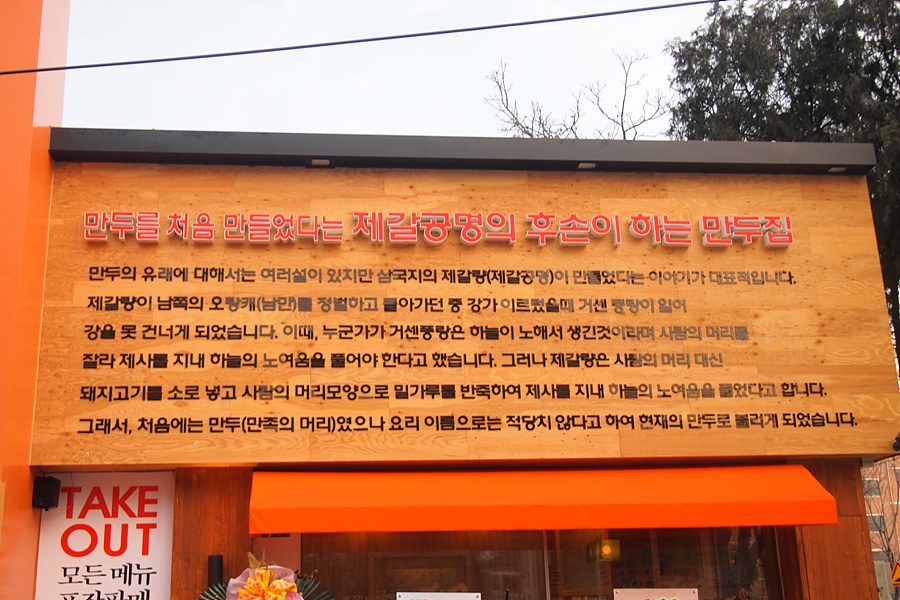 만두를 처음 만들었다는 제갈공명의 후손이 하는 만두집
만두의 유래에 대해서는 여러설이 있지만 삼국지의 제갈량(제갈공명)이 만들었다는 이야기가 대표적입니다.
제갈량이 남쪽의 오랑캐(남만)를 정벌하고 돌아가던 중 강가 이르렀을때 거센 풍랑이 일어
강을 못 건너게 되었습니다. 이때, 누군가가 거센풍랑은 하늘이 노해서 생긴것이라며 사람의 머리를
잘라 제사를 지내 하늘의 노여움을 풀어야 한다고 했습니다. 그러나 제갈량은 사람의 머리 대신
돼지고기를 소로 넣고 사람의 머리모양으로 밀가루를 반죽하여 제사를 지내 하늘의 노여움을 풀었다고 합니다.
그래서, 처음에는 만두(만족의 머리)였으나 요리 이름으로는 적당치 않다고 하여 현재의 만두로 불리게 되었습니다.
TAKE
OUT
모든 메뉴
포장판매